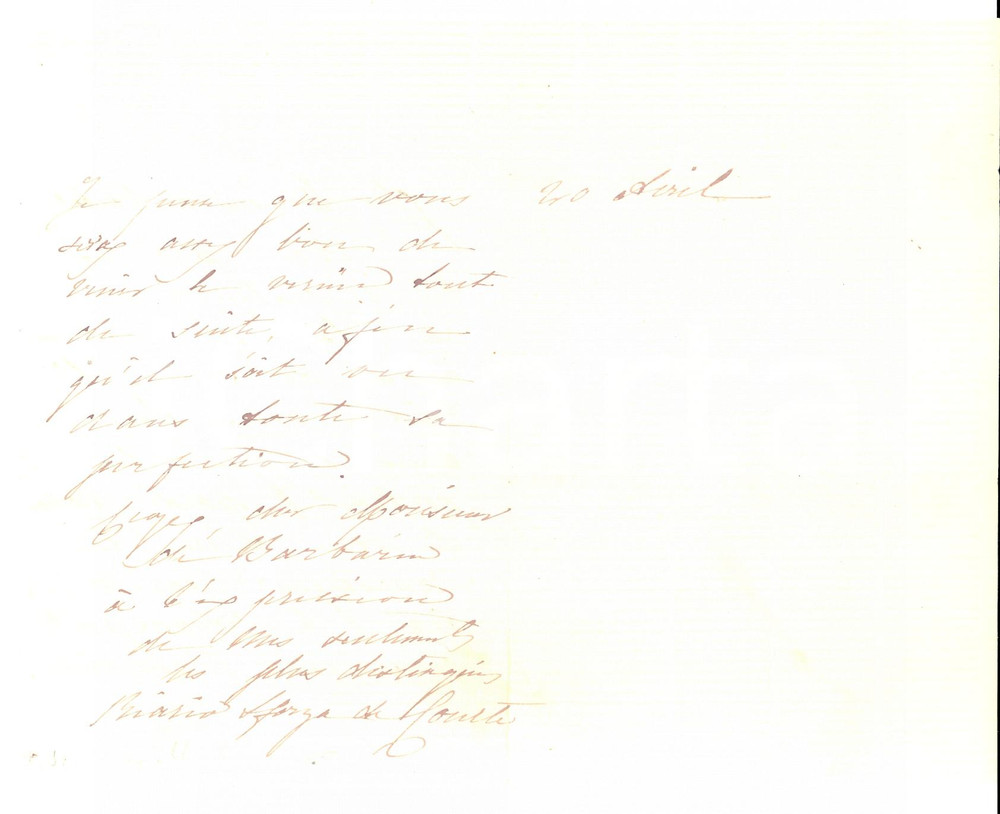 Je pense que vous 20 Avril
serez assez bon de
venir le voir tout
de suite, afin
qu'il soit vu
dans toute sa
perfection.
Croyez, cher Monsieur
de Barbarin
à l'expression
de mes sentiments
les plus distingués
Riario Sforza de